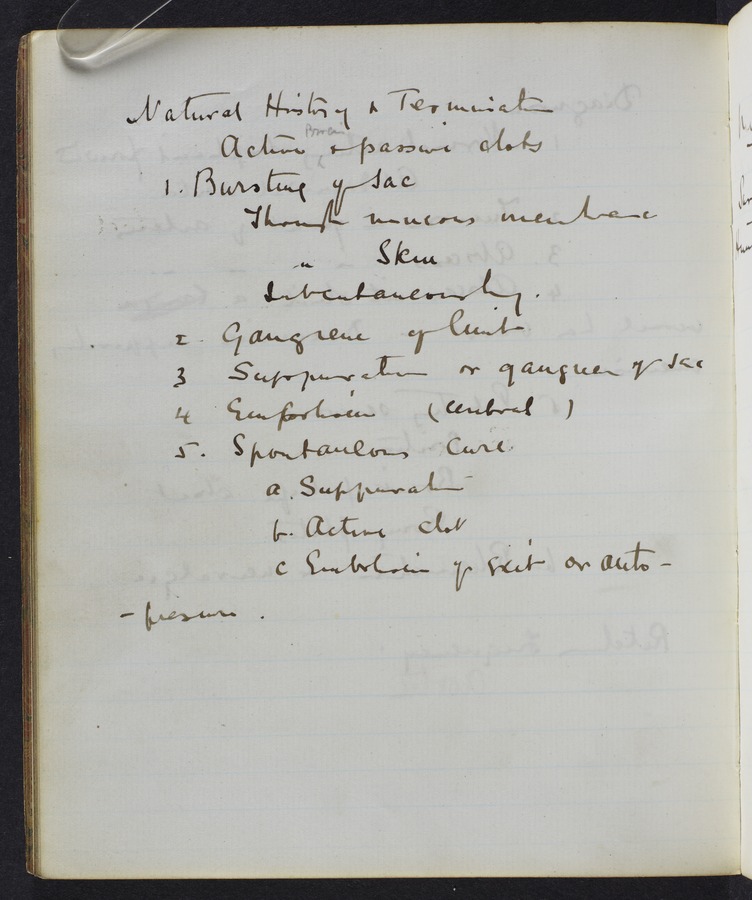 Natural History & Termination
Active & passive clots
1. Bursting of Sac
Through mucous membrane
" Skin
Subcutaneously.
2. Gangrene of limb
3 Suppuration or gangrene of Sac
4 Embolism (cerebral)
5. Spontaneous Cure
a. Suppuration
b. Active clot
c Embolism of exit or auto-
-pressure.